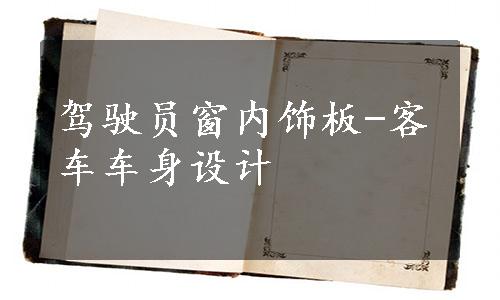 驾驶员窗内饰板-客
车车身设计